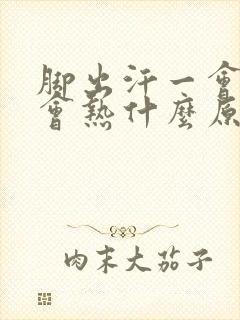 脚出汗一會
會熱什麼原
肉末大茄子